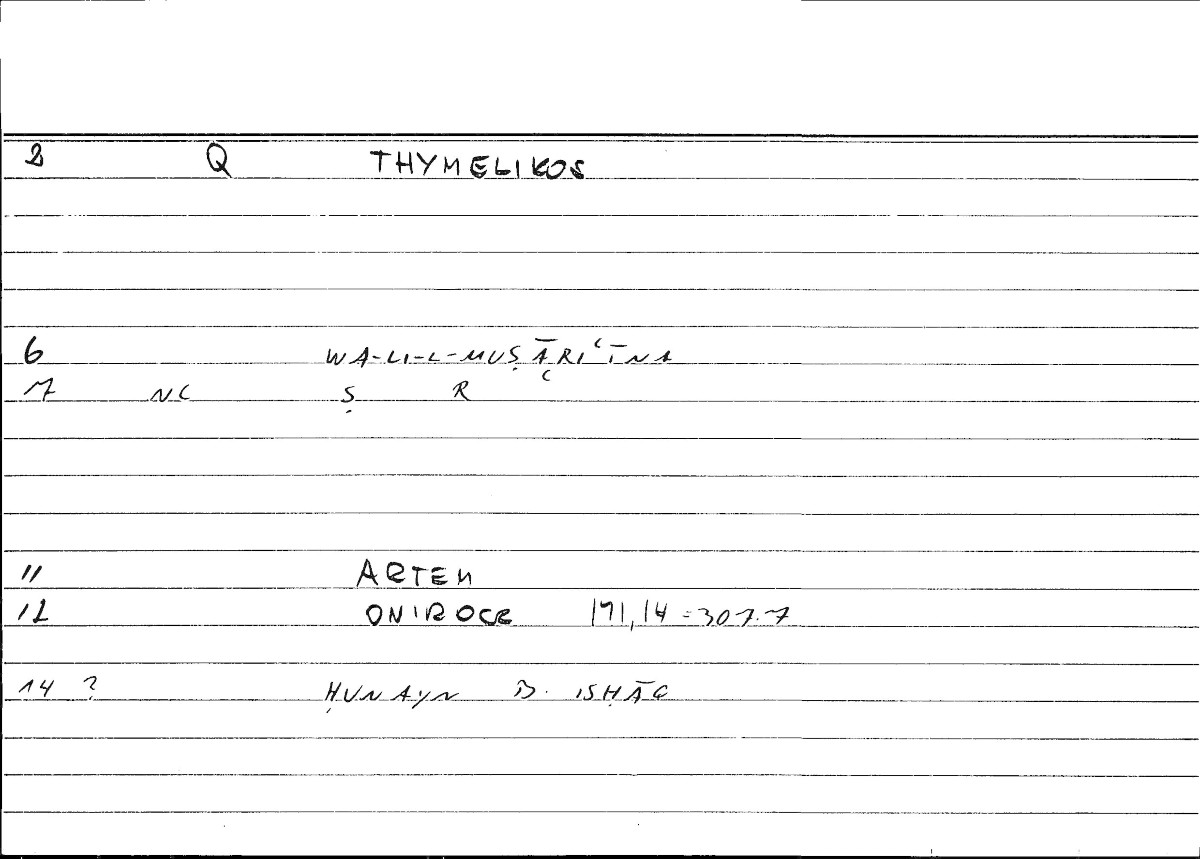 2 Q THYMELIKOS
6 WA-LI-L-MUṢĀRIʿĪNA
7 NC Ṣ R ʿ
11 ARTEM
12 ONIROCR 171,14 = 307.7
14 ? ḤUNAYN B. ISḤĀQ